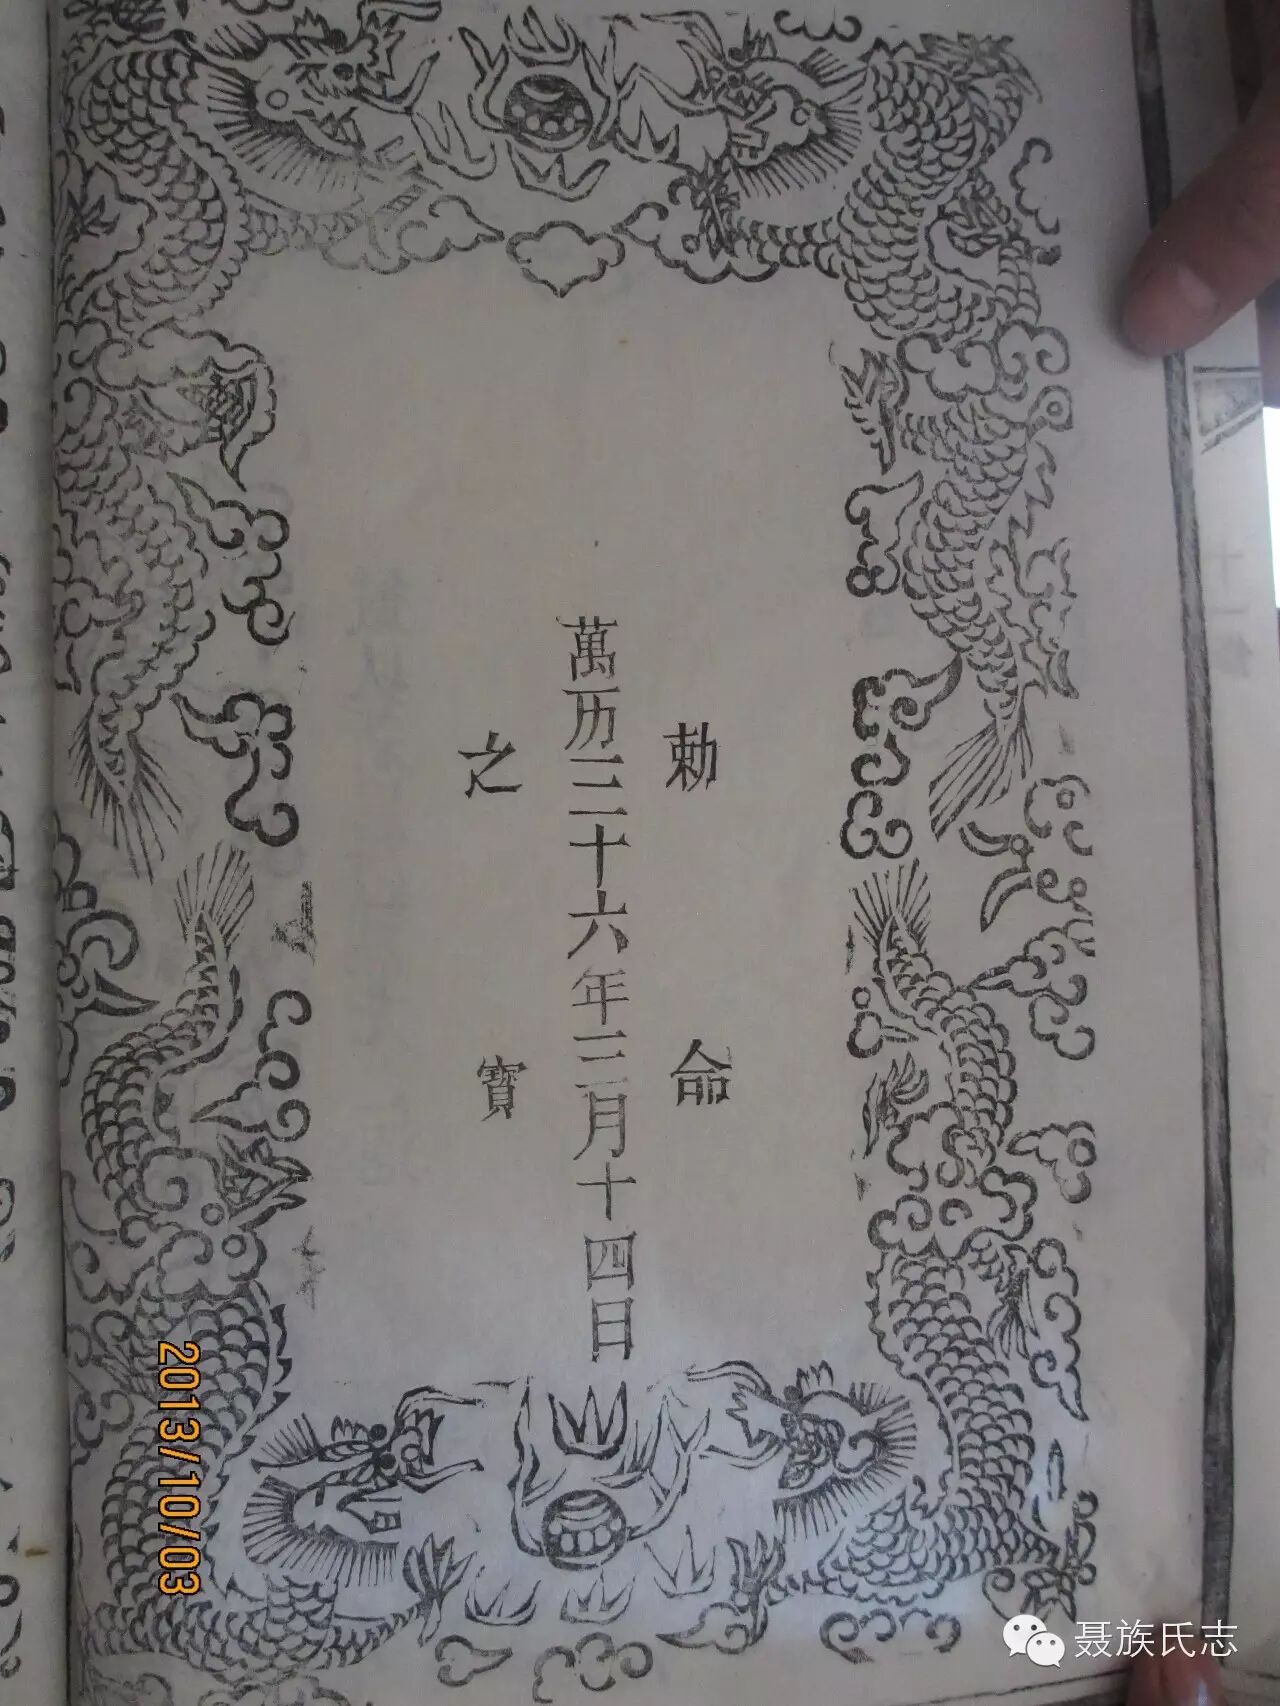 勅命
萬历三十六年三月十四日
之寳
2013/10/03
聂族氏志